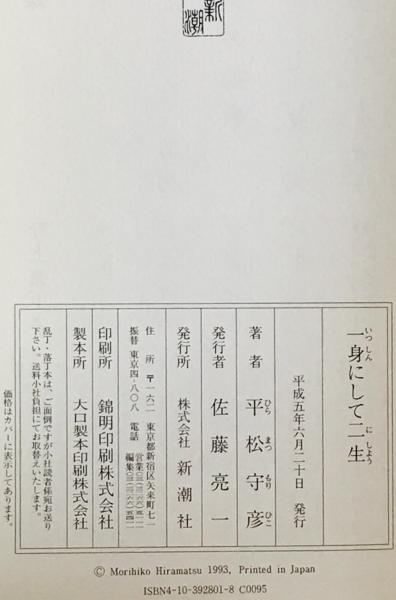 新潮
一身にして二生
いっしん に しょう
平成五年六月二十日 発行
著者 平松守彦
ひら まつ もり ひこ
発行者 佐藤亮一
発行所 株式会社 新潮社
住所 〒一六二 東京都新宿区矢来町七一
振替 東京四-八〇八 電話
印刷所 錦明印刷株式会社
製本所 大口製本印刷株式会社
乱丁・落丁本は、ご面倒ですが小社読者係宛お送り
下さい。送料小社負担にてお取替えいたします。
価格はカバーに表示してあります。
© Morihiko Hiramatsu 1993, Printed in Japan
ISBN4-10-392801-8 C0095